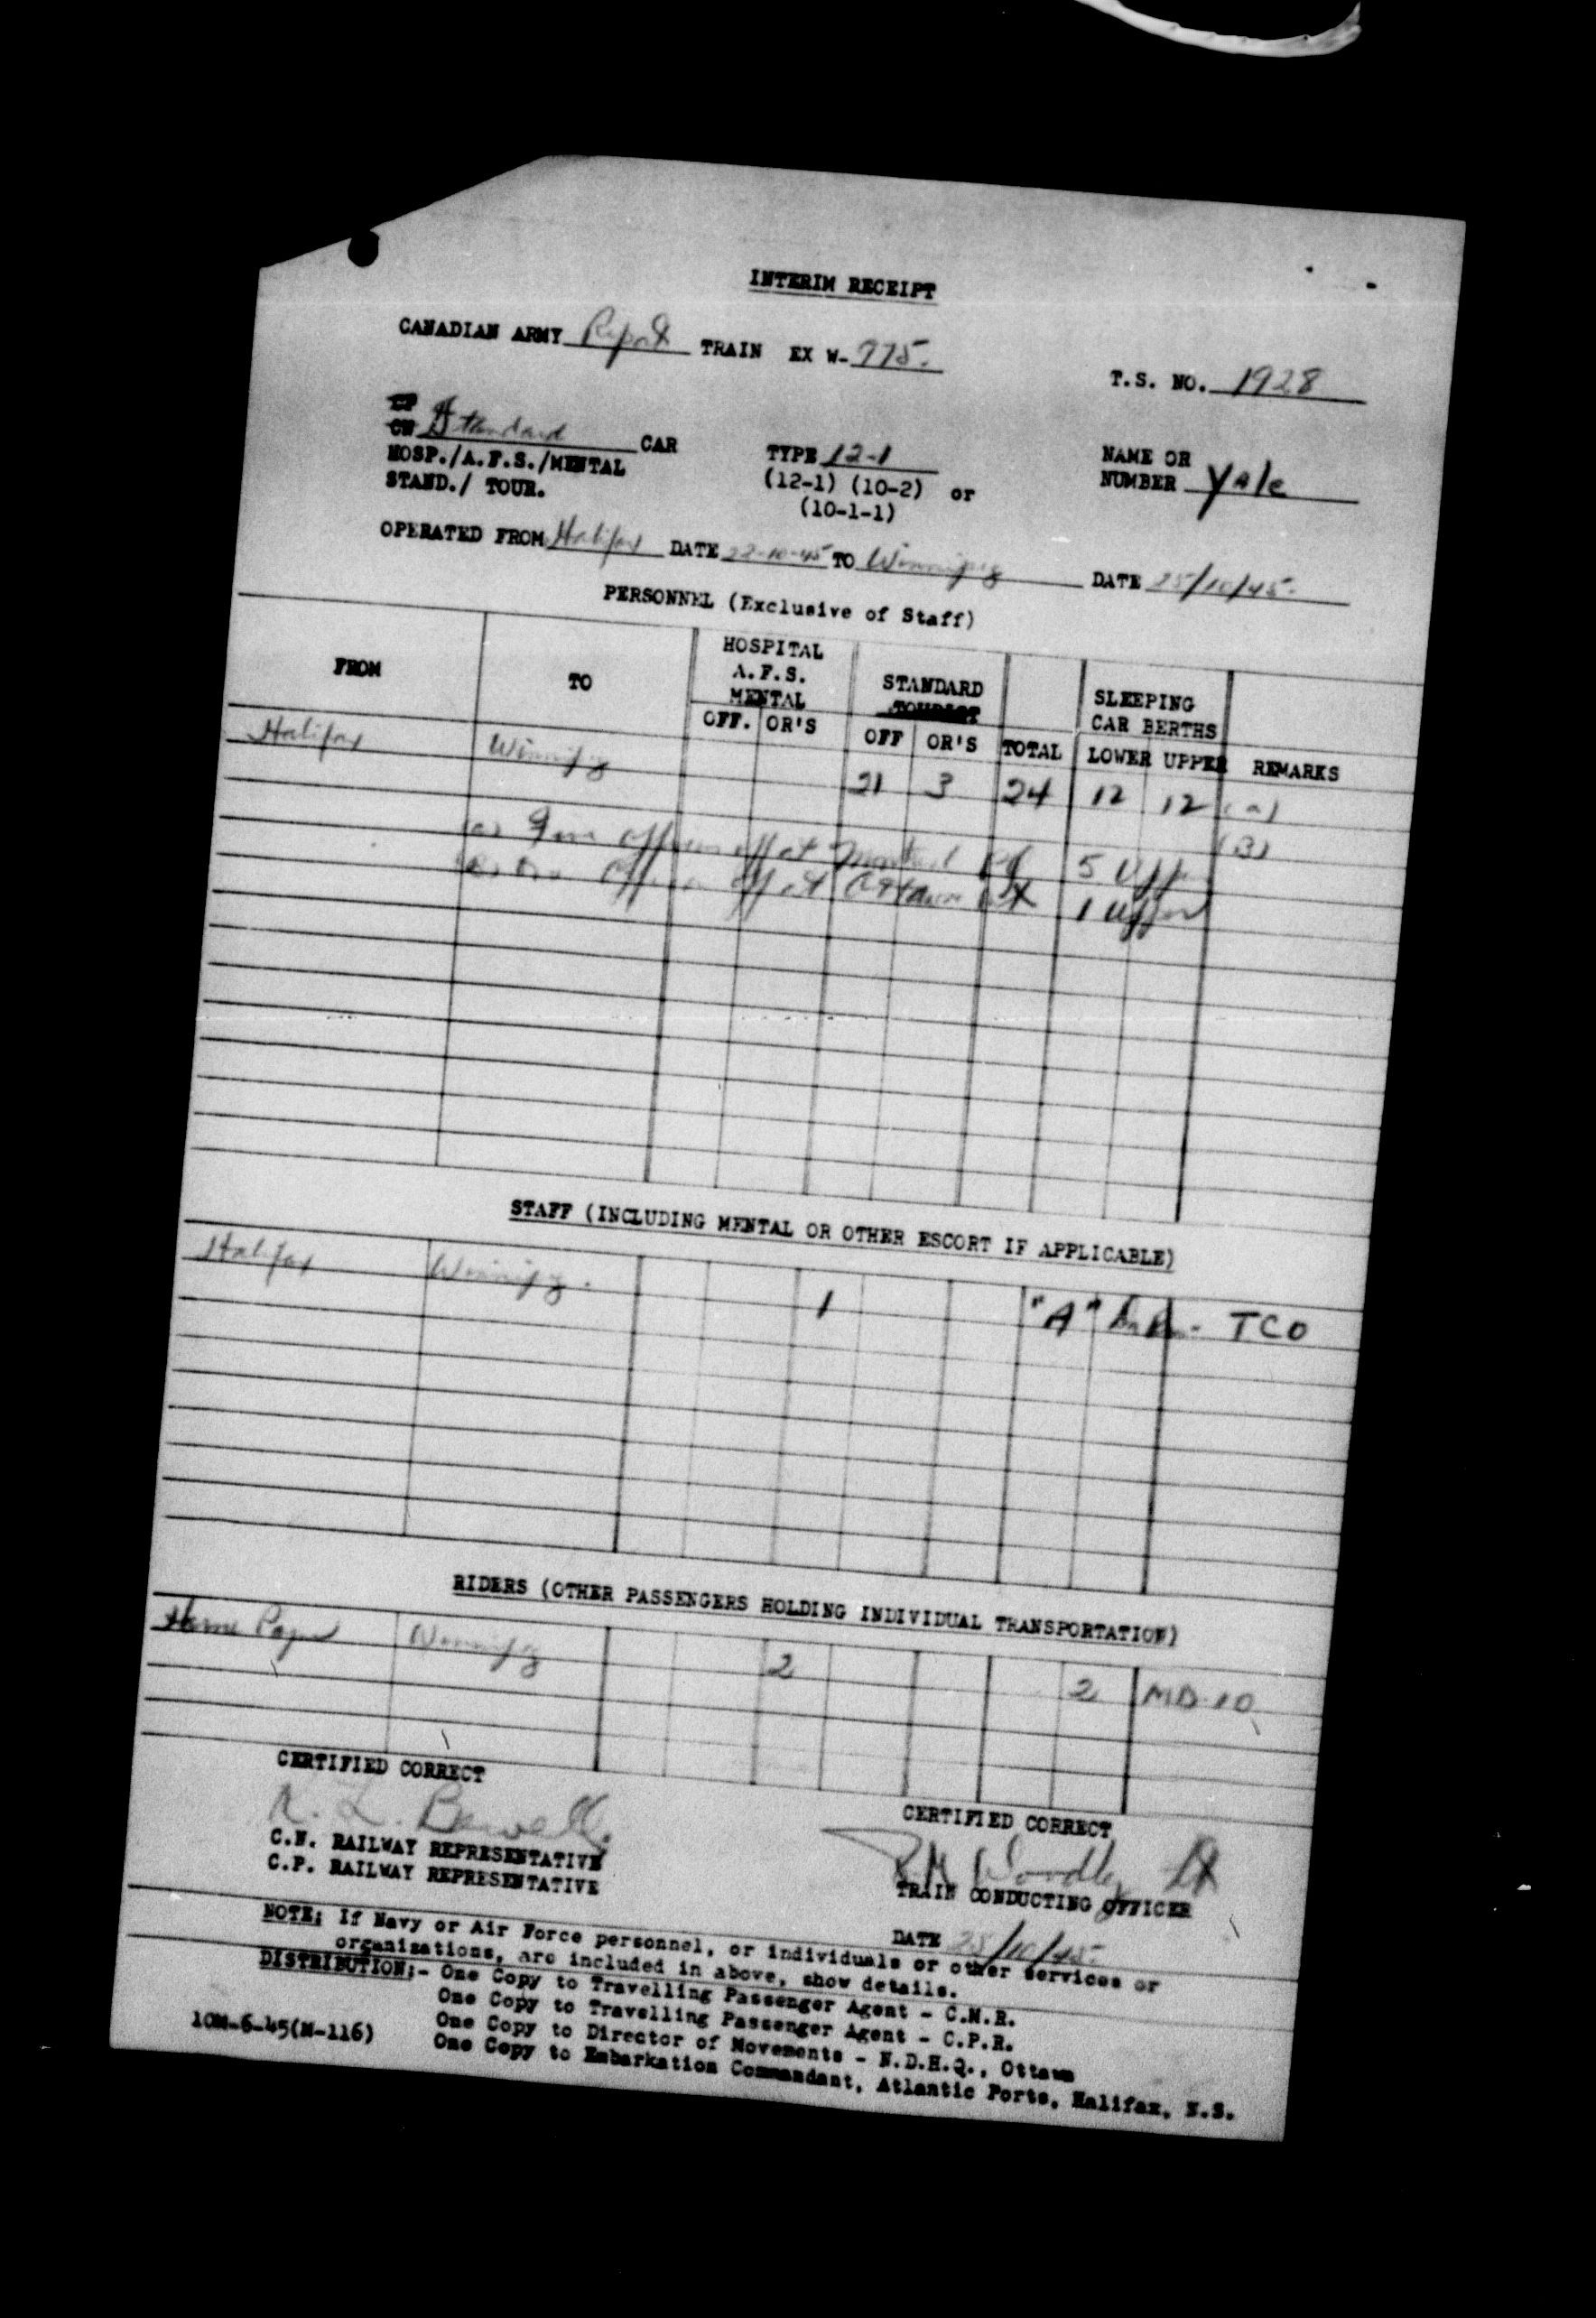 INTERIM RECEIPT
CANADIAN ARMY Repat TRAIN EX W- 775.
T.S. NO. 1928
CP
CN Standard CAR
HOSP./A.F.S./MENTAL
STAND./ TOUR.
TYPE 12-1
(12-1) (10-2) or
(10-1-1)
NAME OR
NUMBER Yale
OPERATED FROM Halifax DATE 22-10-45 TO Winnipeg DATE 25/10/45.
PERSONNEL (Exclusive of Staff)
FROM TO HOSPITAL A.F.S. MENTAL STANDARD TOURIST SLEEPING CAR BERTHS
OFF. OR'S OFF OR'S TOTAL LOWER UPPER REMARKS
Halifax Winnipeg 21 3 24 12 12 (a)
(B)
(a) officers off at Montreal 5 Upper
(B) One Officer off at Ottawa 1 Upper
STAFF (INCLUDING MENTAL OR OTHER ESCORT IF APPLICABLE)
Halifax Winnipeg. 1 "A" TCO
RIDERS (OTHER PASSENGERS HOLDING INDIVIDUAL TRANSPORTATION)
Horne Payne Winnipeg 2 2 MD 10
CERTIFIED CORRECT
C.N. RAILWAY REPRESENTATIVE
C.P. RAILWAY REPRESENTATIVE
CERTIFIED CORRECT
TRAIN CONDUCTING OFFICER
DATE 25/10/45.
NOTE: If Navy or Air Force personnel, or individuals or other services or
organizations, are included in above, show details.
DISTRIBUTION:- One Copy to Travelling Passenger Agent - C.N.R.
One Copy to Travelling Passenger Agent - C.P.R.
One Copy to Director of Movements - N.D.H.Q., Ottawa
One Copy to Embarkation Commandant, Atlantic Ports, Halifax, N.S.
10M-6-45(M-116)